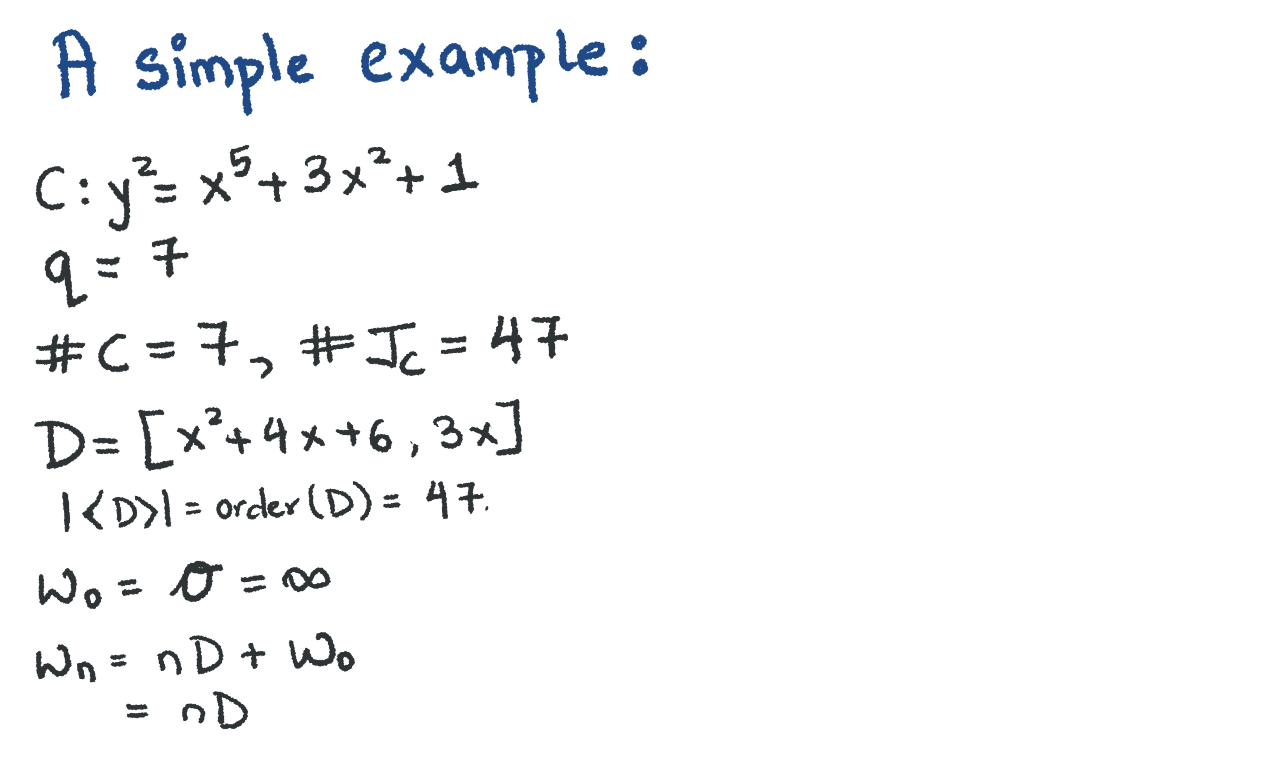 A simple example:
C: y² = x⁵ + 3x² + 1
q = 7
#C = 7, #J_C = 47
D = [x² + 4x + 6, 3x]
|<D>| = order(D) = 47.
W₀ = 𝒪 = ∞
Wₙ = nD + W₀
= nD